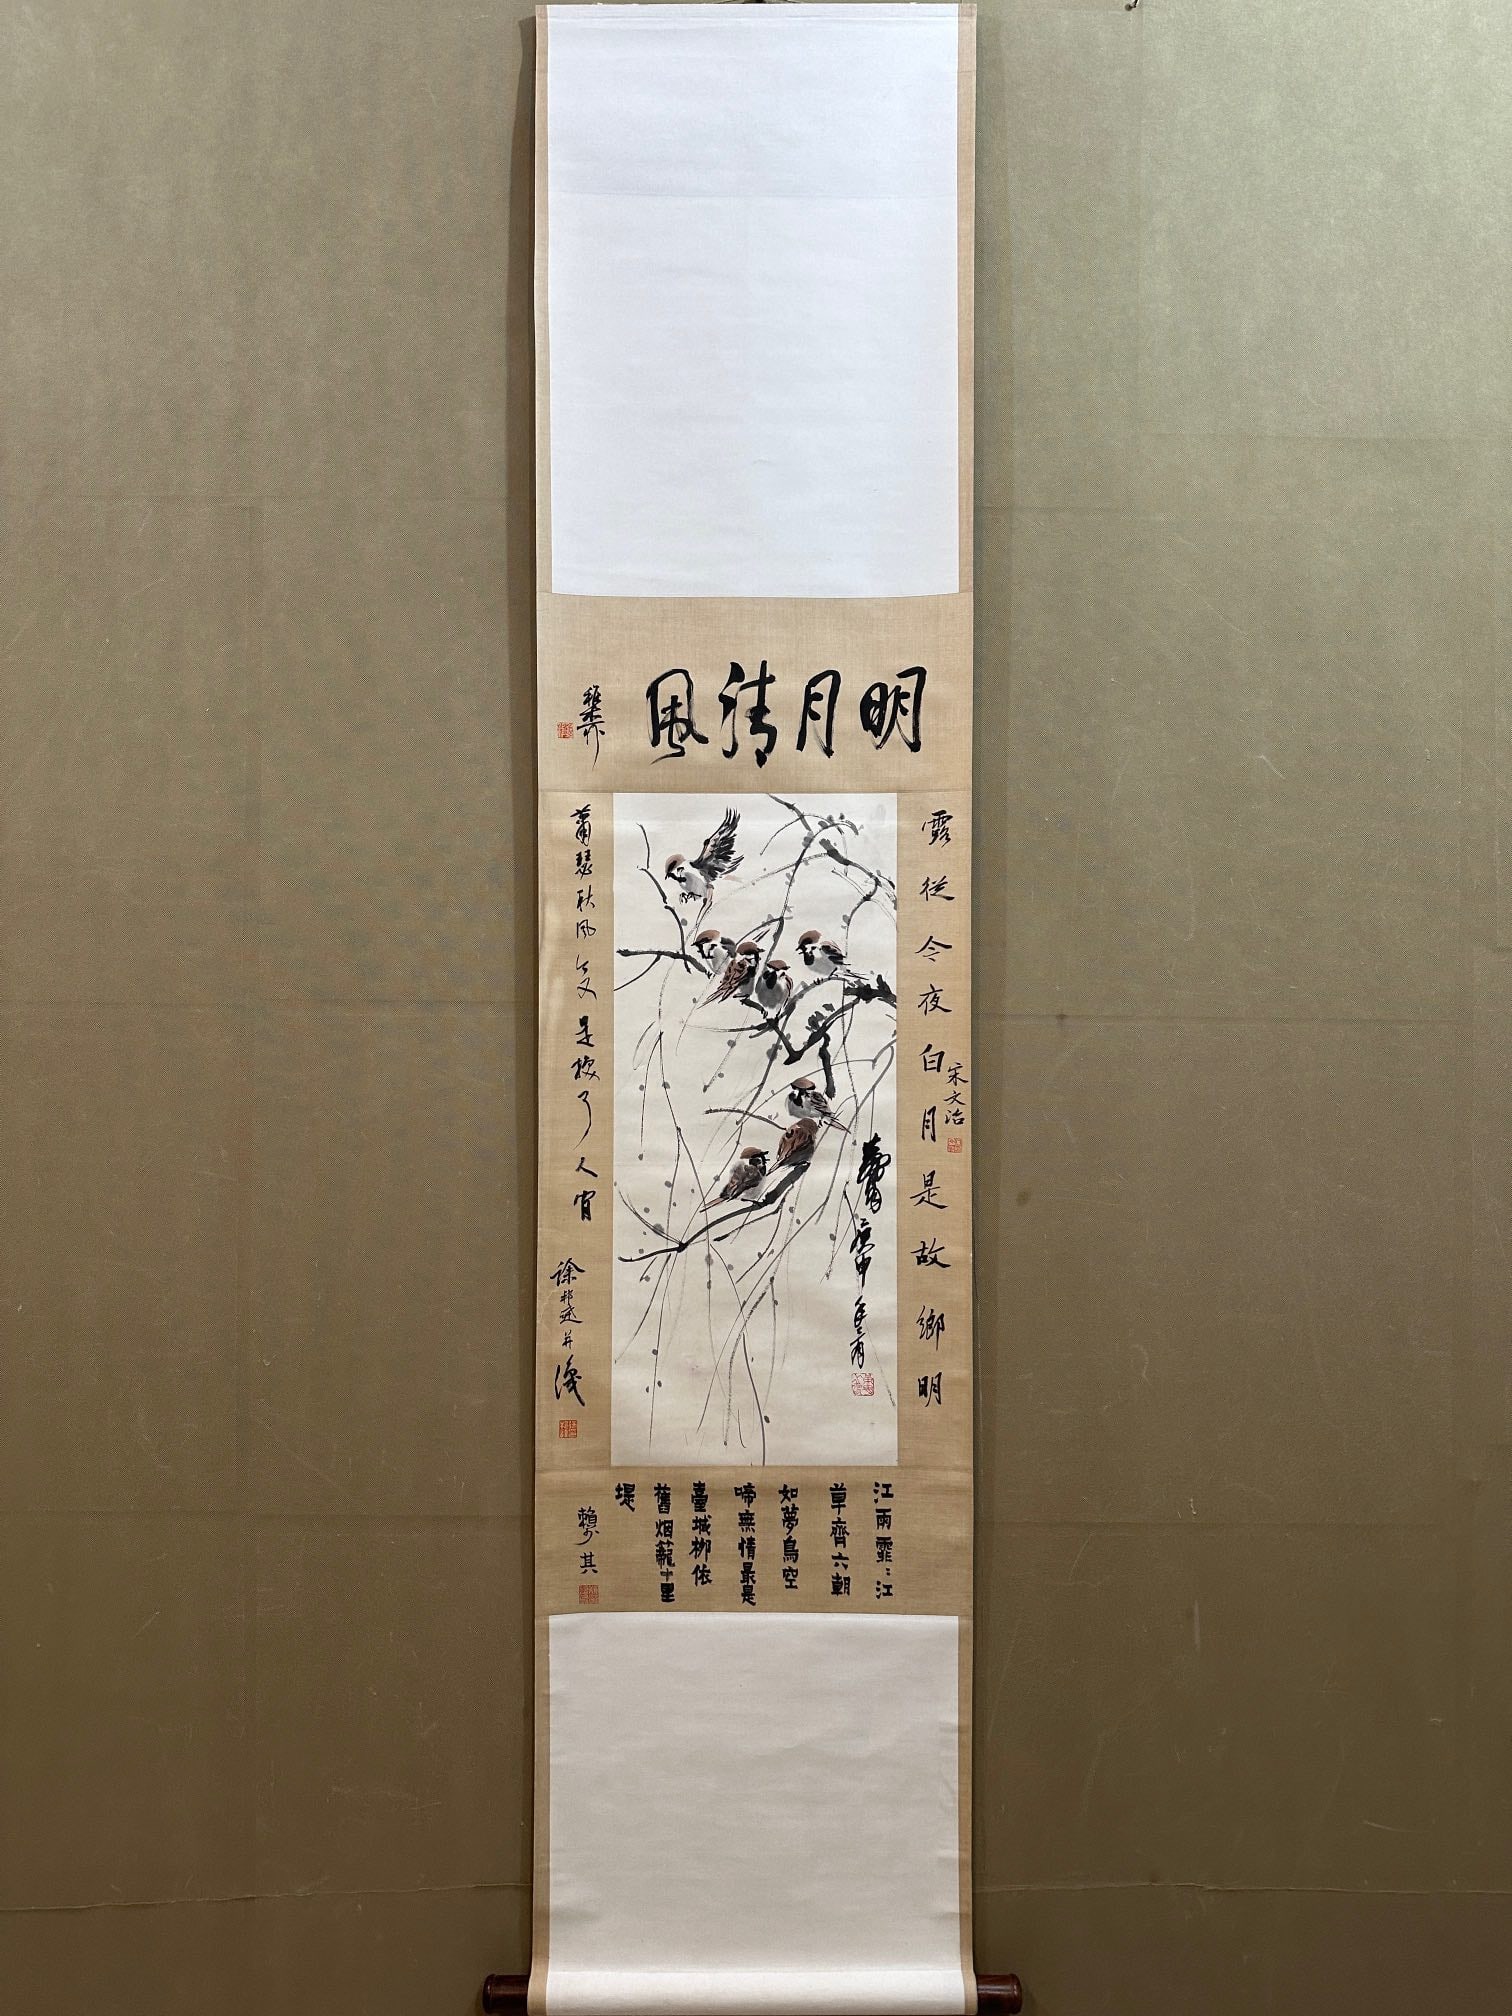 明月清風
稚柳
露從今夜白月是故鄉明
宋文治
黃胄庚申年
蕭瑟秋風今又是換了人間
徐邦達并識
江雨霏〻江
草齊六朝
如夢鳥空
啼無情最是
臺城柳依
舊烟籠十里
堤
賴少其